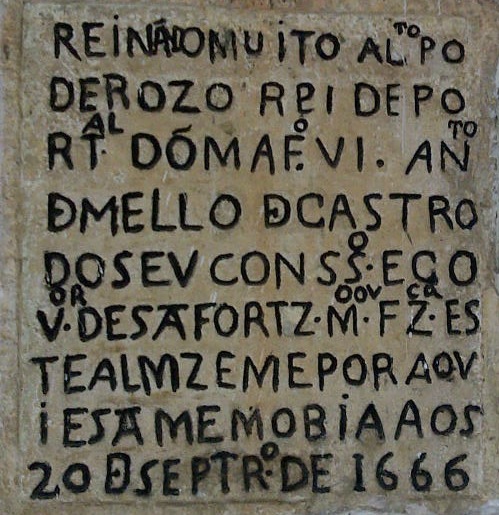 REINÃDO MUITO ALTO PO
DEROZO REI DE PO
RTAL. DÓM AFO. VI. ANTO
D MELLO D CASTRO
DO SEV CONSSO. E GO
VOR. DESA FORTZ. MOOV. FZCA. ES
TE ALMZEM E POR AQV
I ESA MEMOBIA AOS
20 D SEPTRO. DE 1666